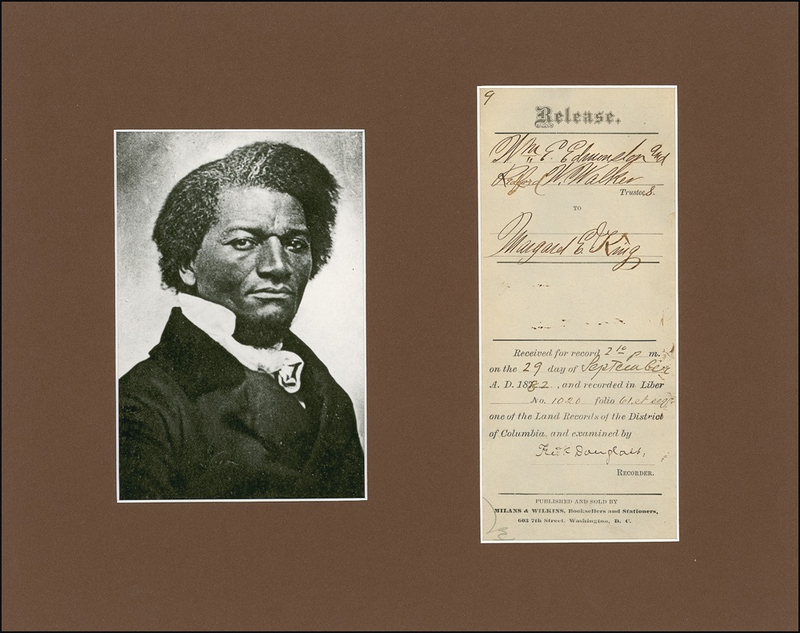 9
Release.
Wm. E. Edmonston and
Redford W. Walker
Trustees.
TO
Margaret E. King
Received for record 2 10 P m.
on the 29 day of September
A. D. 1882, and recorded in Liber
No. 1020 folio 61 et seq.
one of the Land Records of the District
of Columbia, and examined by
Fredk Douglass,
RECORDER.
PUBLISHED AND SOLD BY
MILANS & WILKINS, Booksellers and Stationers,
603 7th Street, Washington, D. C.